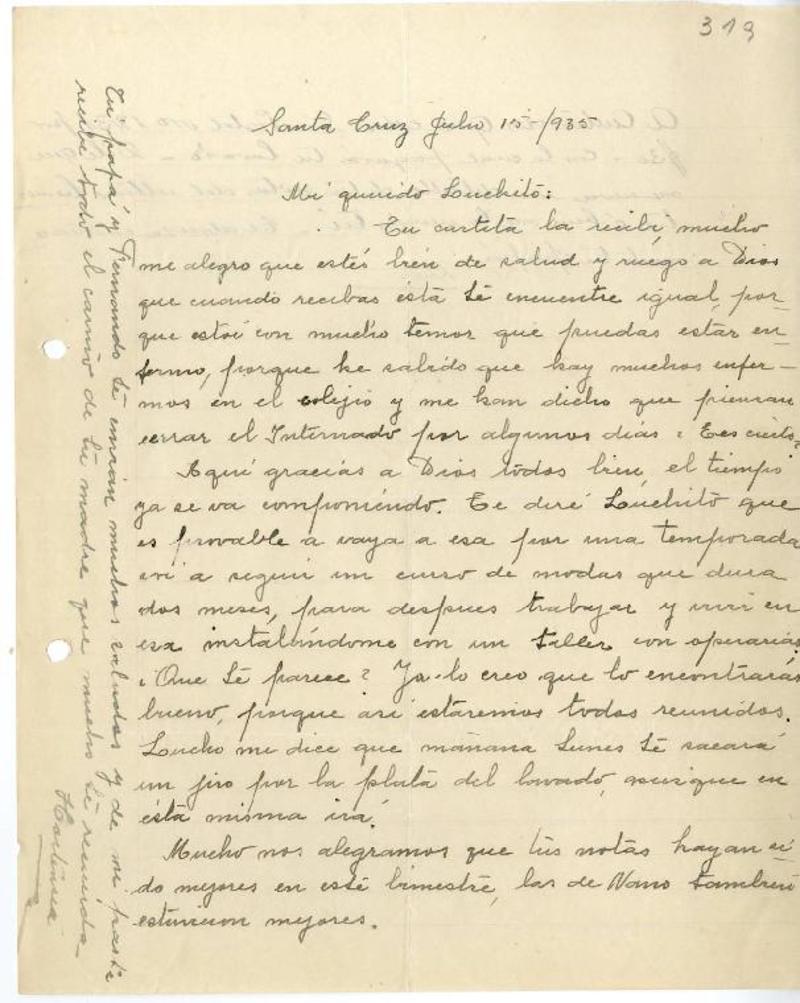 319
Santa Cruz Julio 15/935
Mi querido Luchito:
Tu cartita la recibí, mucho
me alegro que estés bien de salud y ruego a Dios
que cuando recibas ésta té encuentre igual, por-
que estoi con mucho temor que puedas estar en-
fermo, porque he sabido que hay muchos enfer-
mos en el colejio y me han dicho que piensan
cerrar el Internado por algunos días ¿Ees cierto?
Aquí gracias a Dios todos bien, el tiempo
ya se va componiendo. Te diré Luchito que
es provable a vaya a esa por una temporada
voi a seguir un curso de modas que dura
dos meses, para despues trabajar y vivir en
esa instalándome con un taller con operarias.
¿Que té parece? Ya lo creo que lo encontrarás
bueno, porque así estaremos todos reunidos.
Lucho me dice que mañana Lunes té sacará
un jiro por la plata del lavado, asi que en
ésta misma irá.
Mucho nos alegramos que tús notas hayan si
do mejores en esté bimestre, las de Nano tambien
estuvieron mejores.
Tu papá y Fernando té envían muchos saludos y de mi parte
recibe todo el cariño de tú madre que mucho té recuerda
Hortensia